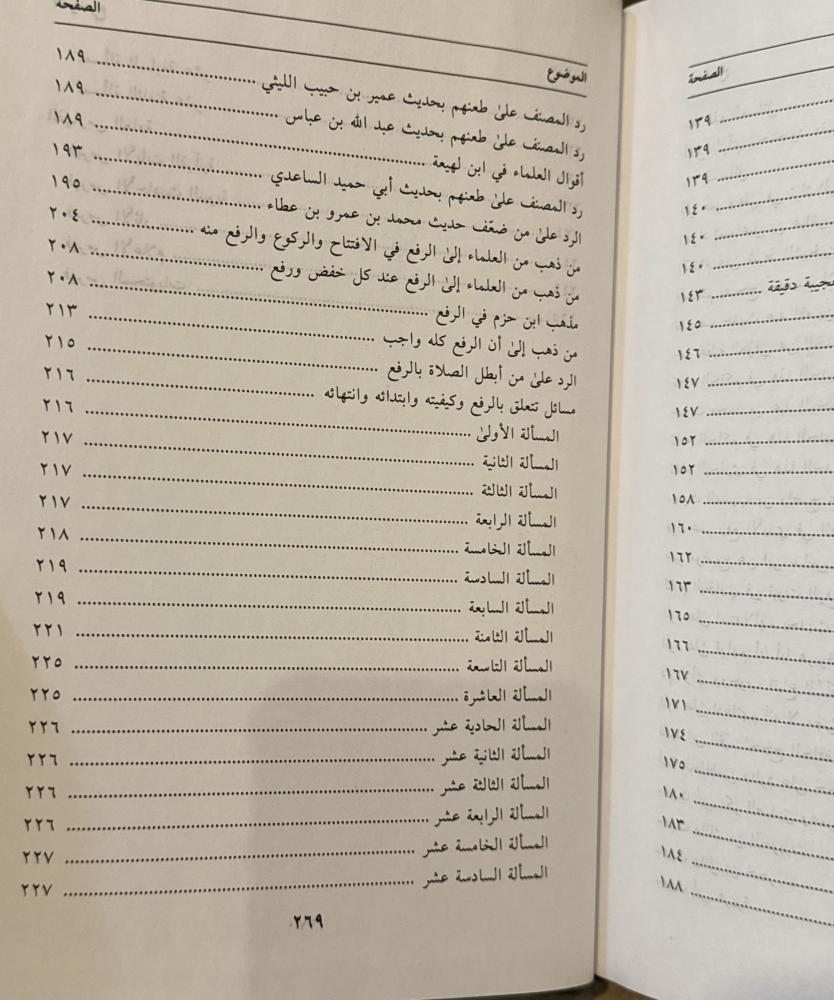 الصفحة
١٣٩
١٣٩
١٣٩
١٤٠
١٤٠
١٤٠
دقيقة ........... ١٤٣
١٤٥
١٤٦
١٤٧
١٤٧
١٥٢
١٥٢
١٥٨
١٦٠
١٦٢
١٦٣
١٦٥
١٦٦
١٦٧
١٧١
١٧٤
١٧٥
١٨٠
١٨٣
١٨٤
١٨٨
الموضوع الصفحة
رد المصنف علىٰ طعنهم بحديث عمير بن حبيب الليثي ........... ١٨٩
رد المصنف علىٰ طعنهم بحديث عبد الله بن عباس ........... ١٨٩
أقوال العلماء في ابن لهيعة ........... ١٨٩
رد المصنف علىٰ طعنهم بحديث أبي حميد الساعدي ........... ١٩٣
الرد علىٰ من ضعّف حديث محمد بن عمرو بن عطاء ........... ١٩٥
من ذهب من العلماء إلىٰ الرفع في الافتتاح والركوع والرفع منه ........... ٢٠٤
من ذهب من العلماء إلىٰ الرفع عند كل خفض ورفع ........... ٢٠٨
مذهب ابن حزم في الرفع ........... ٢٠٨
من ذهب إلىٰ أن الرفع كله واجب ........... ٢١٣
الرد علىٰ من أبطل الصلاة بالرفع ........... ٢١٥
مسائل تتعلق بالرفع وكيفيته وابتدائه وانتهائه ........... ٢١٦
المسألة الأولىٰ ........... ٢١٦
المسألة الثانية ........... ٢١٧
المسألة الثالثة ........... ٢١٧
المسألة الرابعة ........... ٢١٧
المسألة الخامسة ........... ٢١٨
المسألة السادسة ........... ٢١٩
المسألة السابعة ........... ٢١٩
المسألة الثامنة ........... ٢٢١
المسألة التاسعة ........... ٢٢٥
المسألة العاشرة ........... ٢٢٥
المسألة الحادية عشر ........... ٢٢٦
المسألة الثانية عشر ........... ٢٢٦
المسألة الثالثة عشر ........... ٢٢٦
المسألة الرابعة عشر ........... ٢٢٦
المسألة الخامسة عشر ........... ٢٢٧
المسألة السادسة عشر ........... ٢٢٧
٢٦٩